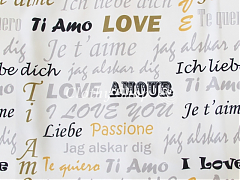 Ti Amo LOVE Te quiero
Je t'aime jag alskar dig
liebe dich Ich liebe dich
I LOVE AMOUR
I LOVE YOU
Liebe Passione
Jag alskar dig
Te quiero Ti Amo I LOVE